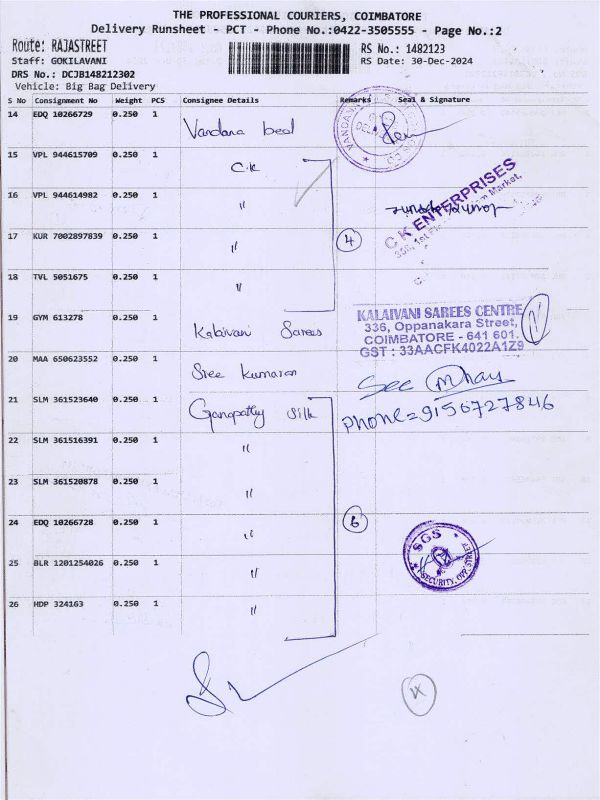 THE PROFESSIONAL COURIERS, COIMBATORE
Delivery Runsheet - PCT - Phone No.:0422-3505555 - Page No.:2
Route: RAJASTREET
RS No.: 1482123
Staff: GOKILAVANI
RS Date: 30-Dec-2024
DRS No.: DCJB148212302
Vehicle: Big Bag Delivery
S No Consignment No Weight PCS Consignee Details Remarks Seal & Signature
14 EDQ 10266729 0.250 1 Vandana
15 VPL 944615709 0.250 1 C.K
16 VPL 944614982 0.250 1 "
C K ENTERPRISES
17 KUR 7002897839 0.250 1 " 4
18 TVL 5051675 0.250 1 "
19 GYM 613278 0.250 1 Kalaivani Sarees
KALAIVANI SAREES CENTRE
336, Oppanakara Street,
COIMBATORE - 641 601.
GST : 33AACFK4022A1Z9
20 MAA 650623552 0.250 1 Sree Kumaran
21 SLM 361523640 0.250 1 Ganapathy Silk
phone=9156727846
22 SLM 361516391 0.250 1 "
23 SLM 361520878 0.250 1 "
24 EDQ 10266728 0.250 1 " 6
25 BLR 1201254026 0.250 1 "
SGS
SECURITY, OPP. STREET
26 HDP 324163 0.250 1 "